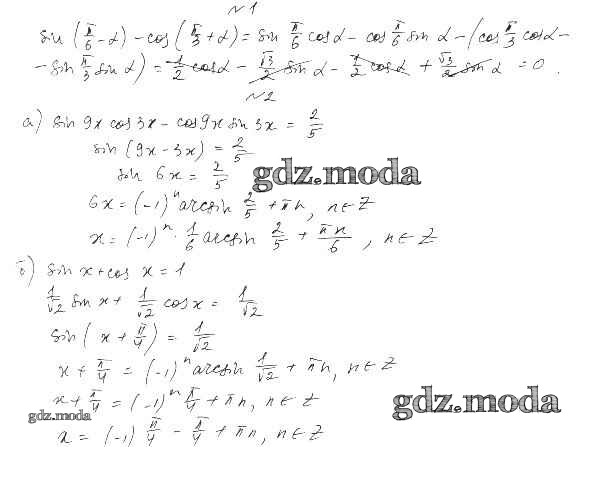 №1
sin (π/6 - α) - cos (π/3 + α) = sin π/6 cos α - cos π/6 sin α - (cos π/3 cos α -
- sin π/3 sin α) = 1/2 cos α - √3/2 sin α - 1/2 cos α + √3/2 sin α = 0.
№2
а) sin 9x cos 3x - cos 9x sin 3x = 2/5
sin (9x - 3x) = 2/5
sin 6x = 2/5
gdz.moda
6x = (-1)^n arcsin 2/5 + πn, n ∈ Z
x = (-1)^n · 1/6 arcsin 2/5 + πn/6, n ∈ Z
б) sin x + cos x = 1
1/√2 sin x + 1/√2 cos x = 1/√2
sin (x + π/4) = 1/√2
x + π/4 = (-1)^n arcsin 1/√2 + πn, n ∈ Z
x + π/4 = (-1)^n π/4 + πn, n ∈ Z
gdz.moda
gdz.moda
x = (-1) π/4 - π/4 + πn, n ∈ Z